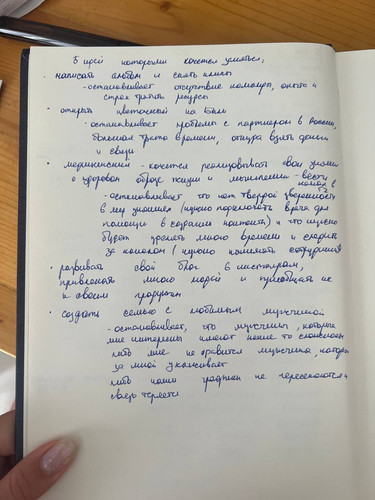 5 идей которыми хочется заняться,
· написать альбом и снять клипы
- останавливает отсутствие команды, опыта и
страх тратить ресурсы
· открыть цветочный на Бали
- останавливает проблемы с партнером в
большая трата времени, откуда взять деньги
и связи
· медицинский - хочется реализовывать свои знания
о здоровом образе жизни и мышлении - вести
канал в
- останавливает что нет твердой уверенности
в мед знаниях (нужно подключать врача для
помощи в создании контента) и что нужно
будет уделять много времени и следить
за каналом (нужно нанимать сотрудников
· развивать свой блог в инстаграм,
привлекать много людей и приобщать их
к своим продуктам
· создать семью с любимым мужчиной
- останавливает, что мужчины, которые
мне интересны имеют какие то сложности
либо мне не нравится мужчина, который
за мной ухаживает
либо наши графики не пересекаются и
связь теряется